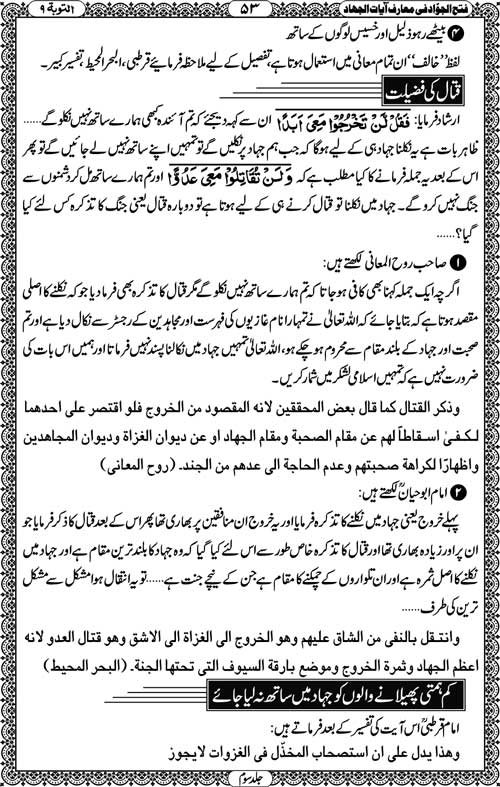 فتح الجوّاد فی معارف آیات الجهاد ۵۳ التوبة ۹
❹ بیٹھے رہو ذلیل اور خسیس لوگوں کے ساتھ
لفظ ’’خالف‘‘ ان تمام معانی میں استعمال ہوتا ہے، تفصیل کے لیے ملاحظہ فرمائیے قرطبی، البحر المحیط، تفسیر کبیر۔
قتال کی فضیلت
ارشاد فرمایا: فَقُلْ لَّنْ تَخْرُجُوْا مَعِیَ اَبَدًا ان سے کہہ دیجئے کہ تم آئندہ کبھی ہمارے ساتھ نہیں نکلو گے......
ظاہر بات ہے یہ نکلنا جہاد ہی کے لیے ہوگا کہ جب ہم جہاد پر نکلیں گے تو تمہیں اپنے ساتھ نہیں لے جائیں گے تو پھر
اس کے بعد یہ جملہ فرمانے کا کیا مطلب ہے کہ وَلَنْ تُقَاتِلُوْا مَعِیَ عَدُوًّا اور تم ہمارے ساتھ مل کر دشمنوں سے
جنگ نہیں کرو گے۔ جہاد میں نکلنا تو قتال کرنے ہی کے لیے ہوتا ہے تو دوبارہ قتال یعنی جنگ کا تذکرہ کس لئے کیا
گیا؟......
❶ صاحب روح المعانی لکھتے ہیں:
اگرچہ ایک جملہ کہنا بھی کافی ہو جاتا کہ تم ہمارے ساتھ نہیں نکلو گے مگر قتال کا تذکرہ بھی فرما دیا جو کہ نکلنے کا اصلی
مقصد ہوتا ہے کہ بتایا جائے کہ اللہ تعالیٰ نے تمہارا نام غازیوں کی فہرست اور مجاہدین کے رجسٹر سے نکال دیا ہے اور تم
صحبت اور جہاد کے بلند مقام سے محروم ہو چکے ہو، اللہ تعالیٰ تمہیں جہاد میں نکالنا پسند نہیں فرماتا اور ہمیں اس بات کی
ضرورت نہیں ہے کہ تمہیں اسلامی لشکر میں شمار کریں۔
وذکر القتال کما قال بعض المحققین لانه المقصود من الخروج فلو اقتصر علی احدهما
لکفیٰ اسقاطاً لهم عن مقام الصحبة ومقام الجهاد او عن دیوان الغزاة ودیوان المجاهدین
واظهارًا لکراهة صحبتهم وعدم الحاجة الی عدهم من الجند۔ (روح المعانی)
❷ امام ابو حیانؒ لکھتے ہیں:
پہلے خروج یعنی جہاد میں نکلنے کا تذکرہ فرمایا اور یہ خروج ان منافقین پر بھاری تھا پھر اس کے بعد قتال کا ذکر فرمایا جو
ان پر اور زیادہ بھاری تھا اور قتال کا تذکرہ خاص طور سے اس لئے کیا گیا کہ وہ جہاد کا بلند ترین مقام ہے اور جہاد میں
نکلنے کا اصل ثمرہ ہے اور ان تلواروں کے چمکنے کا مقام ہے جن کے نیچے جنت ہے...... تو یہ انتقال ہوا مشکل سے مشکل
ترین کی طرف......
وانتقل بالنفی من الشاق علیهم وهو الخروج الی الغزاة الی الاشق وهو قتال العدو لانه
اعظم الجهاد وثمرة الخروج وموضع بارقة السیوف التی تحتها الجنة۔ (البحر المحیط)
کم ہمتی پھیلانے والوں کو جہاد میں ساتھ نہ لیا جائے
امام قرطبیؒ اس آیت کی تفسیر کے بعد فرماتے ہیں:
وهذا یدل علی ان استصحاب المخذّل فی الغزوات لایجوز
جلد سوم